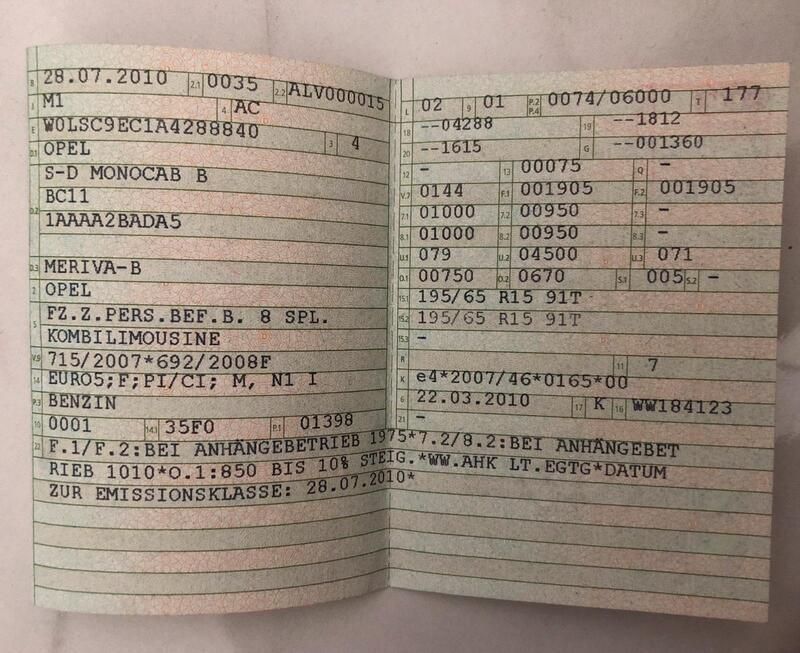 B 28.07.2010 2.1 0035 2.2 ALV000015
J M1 4 AC
E W0LSC9EC1A4288840 3 4
D.1 OPEL
D.2 S-D MONOCAB B
BC11
1AAAA2BADA5
D.3 MERIVA-B
2 OPEL
5 FZ.Z.PERS.BEF.B. 8 SPL.
KOMBILIMOUSINE
V.9 715/2007*692/2008F
14 EURO5;F;PI/CI; M, N1 I
P.3 BENZIN
10 0001 14.1 35F0 P.1 01398
22 F.1/F.2:BEI ANHÄNGEBETRIEB 1975*7.2/8.2:BEI ANHÄNGEBET
RIEB 1010*O.1:850 BIS 10% STEIG.*WW.AHK LT.EGTG*DATUM
ZUR EMISSIONSKLASSE: 28.07.2010*
L 02 9 01 P.2 P.4 0074/06000 T 177
18 --04288 19 --1812
20 --1615 G --001360
12 - 13 00075 Q -
V.7 0144 F.1 001905 F.2 001905
7.1 01000 7.2 00950 7.3 -
8.1 01000 8.2 00950 8.3 -
U.1 079 U.2 04500 U.3 071
O.1 00750 O.2 0670 S.1 005 S.2 -
15.1 195/65 R15 91T
15.2 195/65 R15 91T
15.3 -
R 11 7
K e4*2007/46*0165*00
6 22.03.2010 17 K 16 WW184123
21 -